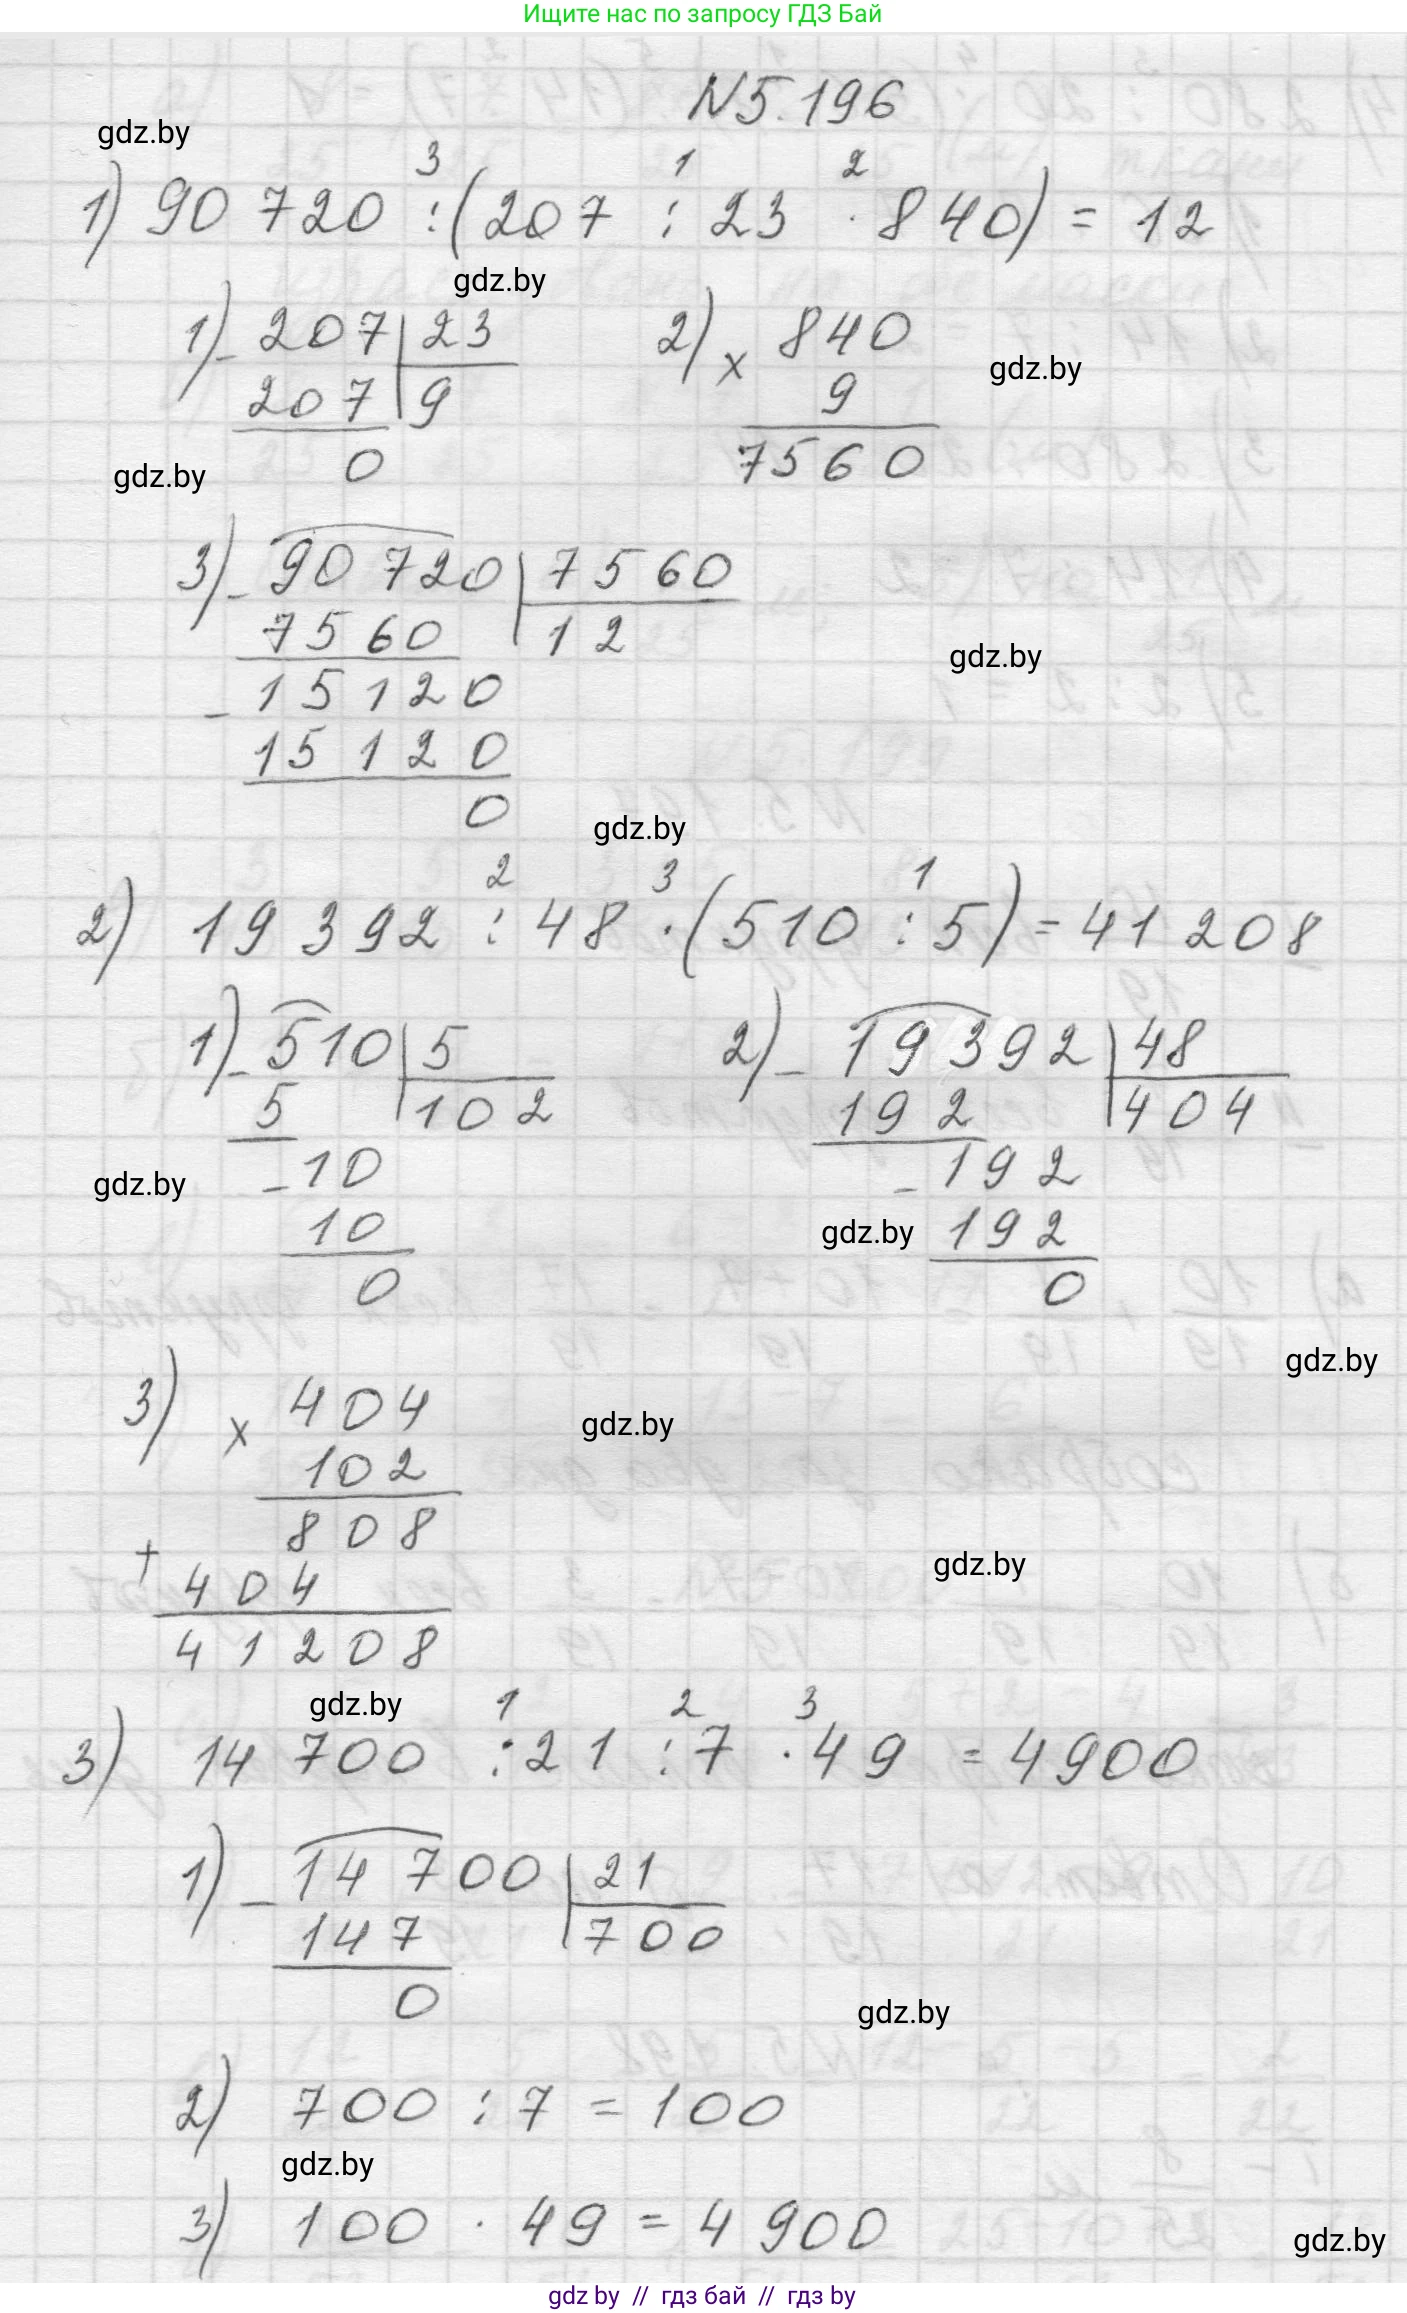 Ищите нас по запросу ГДЗ Бай
N5.196
gdz.by
3 1 2
1) 90 720 : (207 : 23 · 840) = 12
gdz.by
1) - 207 | 23 2) × 840
gdz.by
207 | 9 9
0 7560
gdz.by
3) - 90 720 | 7560
7560 | 12
gdz.by
- 15120
15120
0
gdz.by
2 3 1
2) 19 392 : 48 · (510 : 5) = 41 208
1) - 510 | 5 2) - 19392 | 48
5 | 102 192 | 404
- 10 - 192
gdz.by
10 gdz.by 192
0 0
gdz.by
3) × 404
gdz.by
102
808
gdz.by
+ 404
41208
gdz.by
1 2 3
3) 14 700 : 21 : 7 · 49 = 4900
1) - 14 700 | 21
147 | 700
0
gdz.by
2) 700 : 7 = 100
gdz.by
3) 100 · 49 = 4 900
gdz.by
gdz by // гдз бай // гдз by